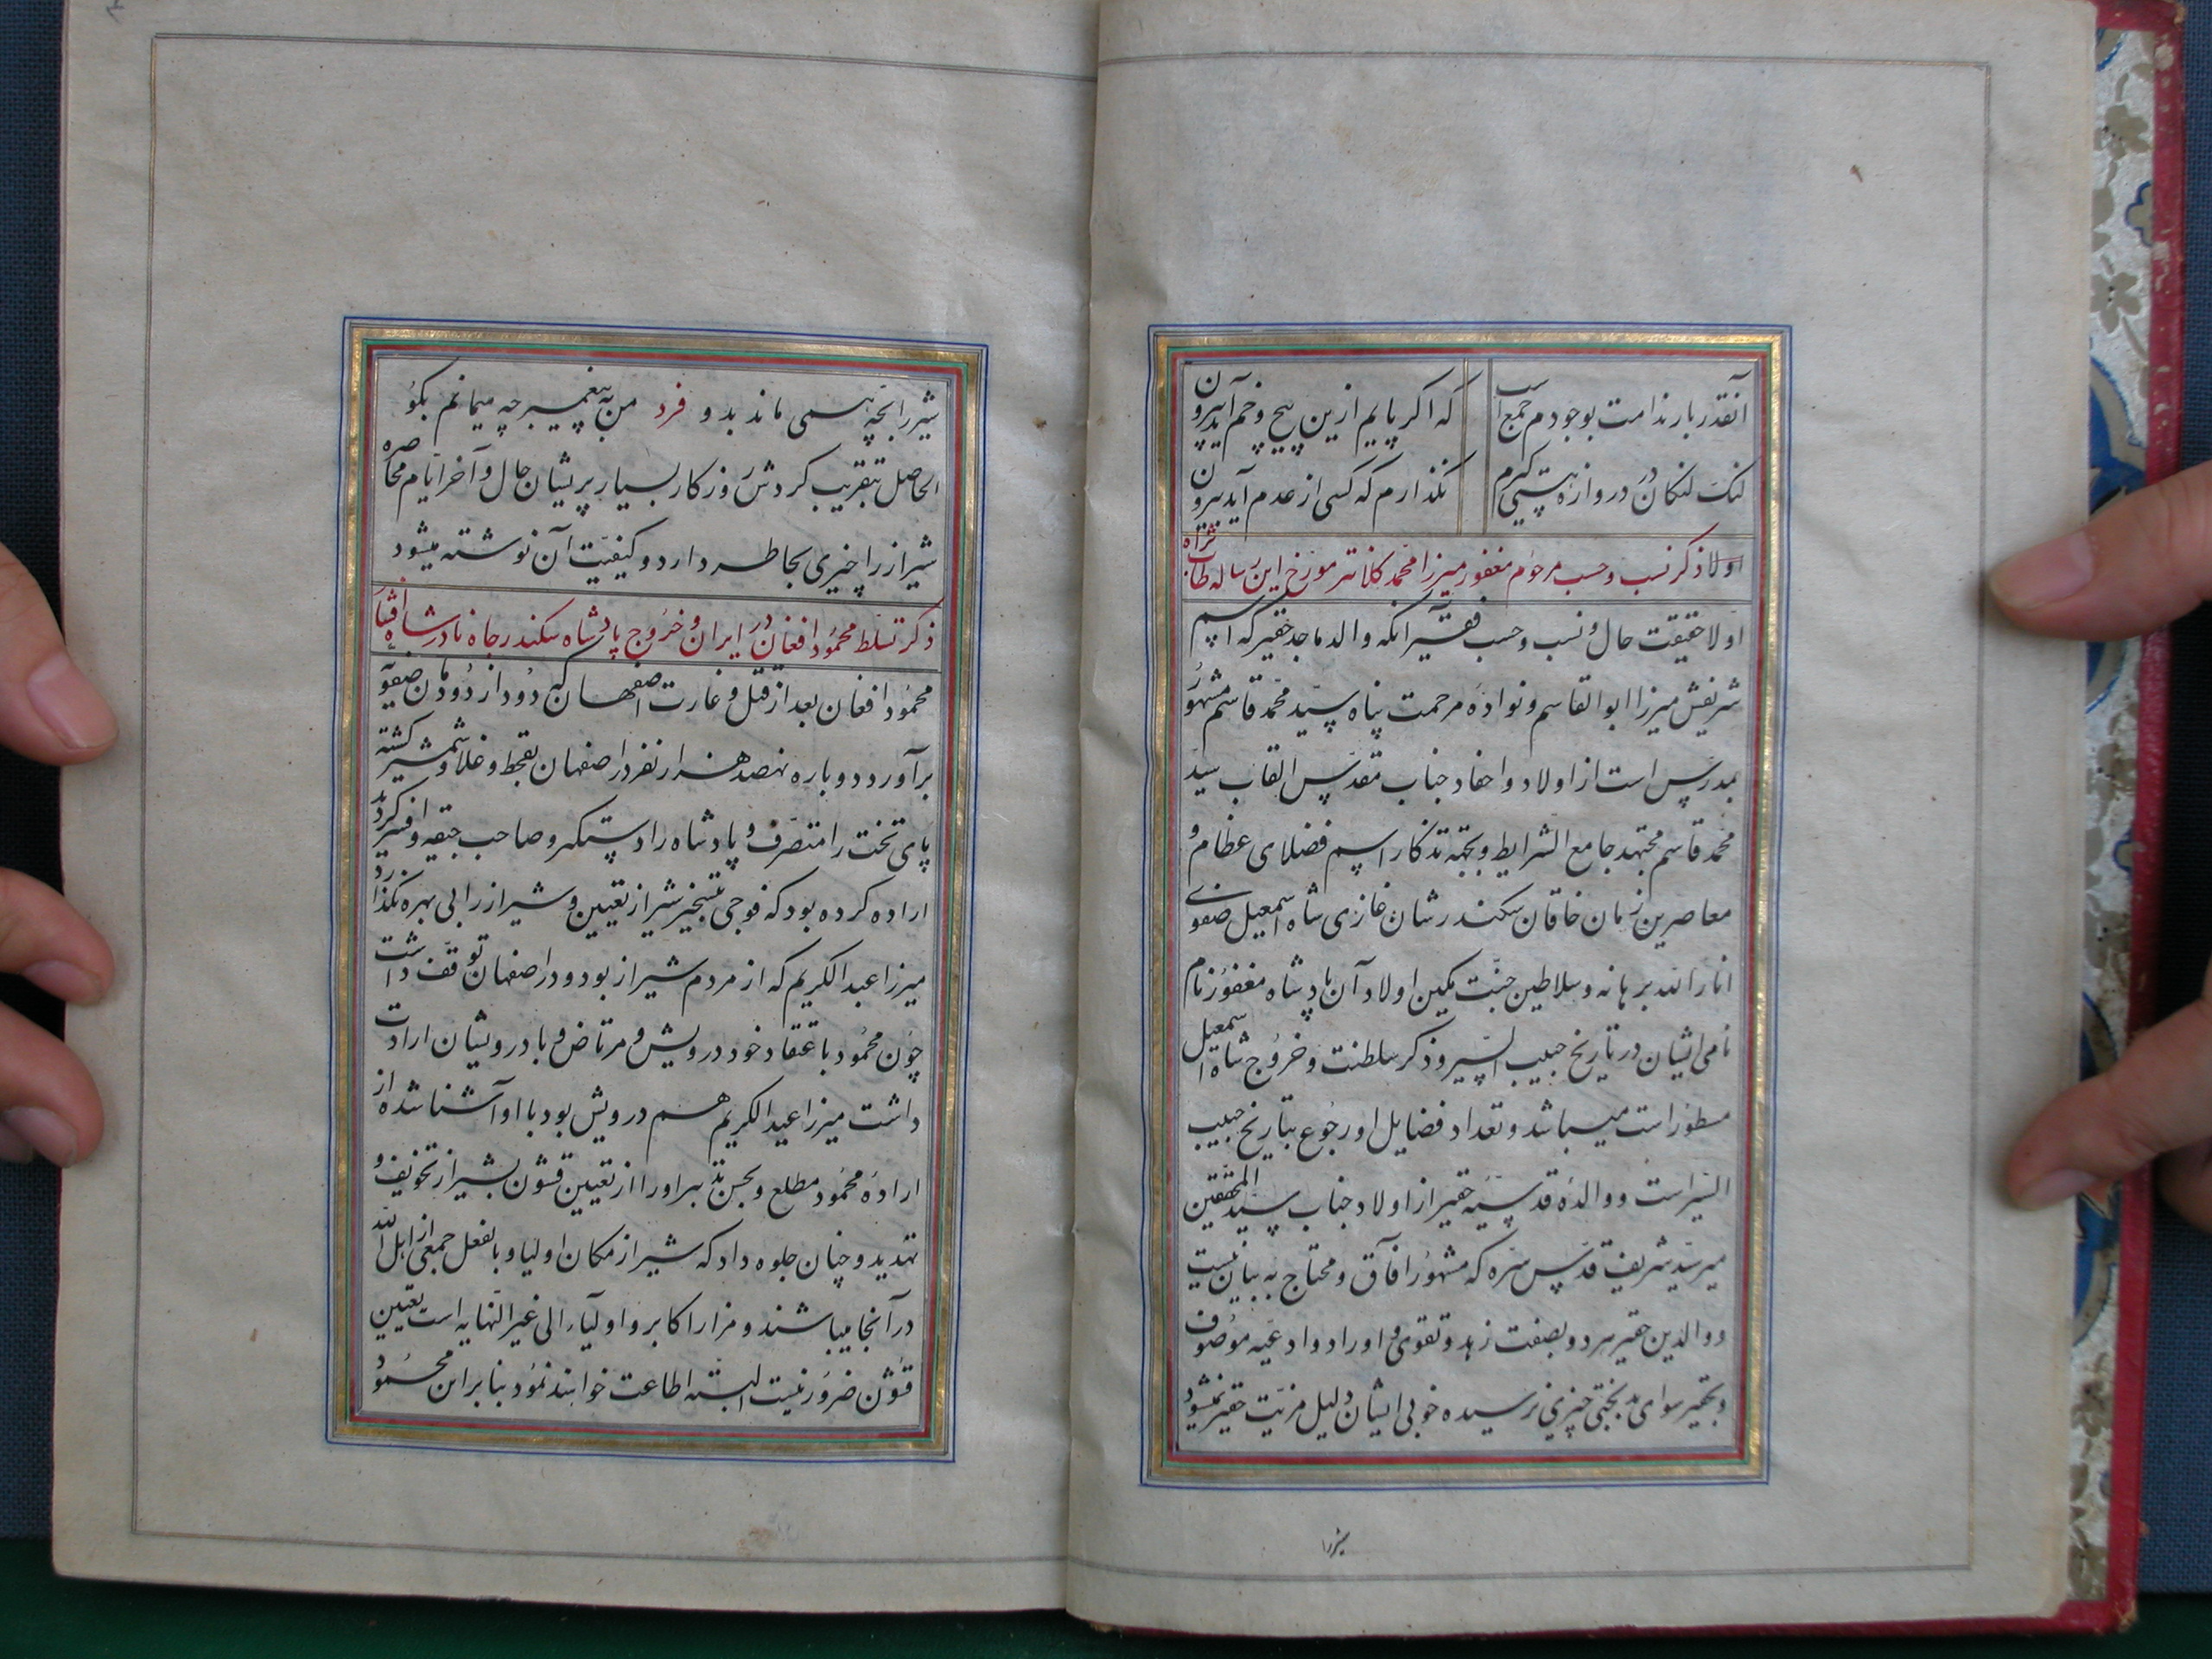 آنقدر بار ندامت بوجودم جمع است
که اگر پایم ازین پیچ و خم آید بیرون
لنک لنکان در دروازه هستی کیرم
نکذارم که کسی از عدم آید بیرون
اولا ذکر نسب و حسب مرحوم مغفور میرزا محمد کلانتر مورخ این رساله طاب ثراه
اولا حقیقت حال و نسب و حسب فقیر آنکه والد ماجد حقیر که اسم
شریفش میرزا ابوالقاسم و نواده مرحمت پناه سید محمد قاسم مشهور
بمدرس است از اولاد و احفاد جناب مقدس القاب سید
محمد قاسم مجتهد جامع الشرایط و بجهه تذکار اسم فضلای عظام و
معاصرین زمان خاقان سکندر شان غازی شاه اسمعیل صفوی
انار الله برهانه و سلاطین جنت مکین اولاد آن پادشاه مغفور نام
نامی ایشان در تاریخ حبیب السیر و ذکر سلطنت و خروج شاه اسمعیل
مسطور است میباشد و تعداد فضایل او رجوع بتاریخ حبیب
السیر است و والده قدسیه حقیر از اولاد جناب سید المحققین
میر سید شریف قدس سره که مشهور آفاق و محتاج به بیان نیست
و والدین حقیر هر دو بصفت زهد و تقوی و اوراد و ادعیه موصوف
و بحقیر سوای بدبختی چیزی نرسیده خوبی ایشان دلیل مزیت حقیر نمیشود
شیر را بچه همی ماند بدو فرد من به پیغمبر چه میمانم بکو
الحاصل بتقریب کردش روزکار بسیار پریشان حال و آخر ایام محاصره
شیراز را چیزی بخاطر دارد و کیفیت آن نوشته میشود
ذکر تسلط محمود افغان در ایران و خروج پادشاه سکندر جاه نادر شاه افشار
محمود افغان بعد از قتل و غارت اصفهان که دود از دودمان صفویه
برآورد دوباره نهصد هزار نفر در اصفهان بقحط و غلا و شمشیر کشته
پای تخت را متصرف و پادشاه را دستکیر و صاحب جیقه و افسر کردید
اراده کرده بود که فوجی بتسخیر شیراز تعیین و شیراز را بی بهره نکذارد
میرزا عبدالکریم که از مردم شیراز بود و در اصفهان توقف داشت
چون محمود باعتقاد خود درویش و مرتاض و با درویشان ارادت
داشت میرزا عبدالکریم هم درویش بود با او آشنا شده از
اراده محمود مطلع و بحسن تدبیر او را از تعیین قشون بشیراز تخویف و
تهدید و چنان جلوه داد که شیراز مکان اولیا و بالفعل جمعی از اهل الله
در آنجا میباشند و مزار اکابر و اولیاء الی غیر النهایه است تعیین
قشون ضرور نیست البته اطاعت خواهند نمود بنا بر این محمود
شیر را